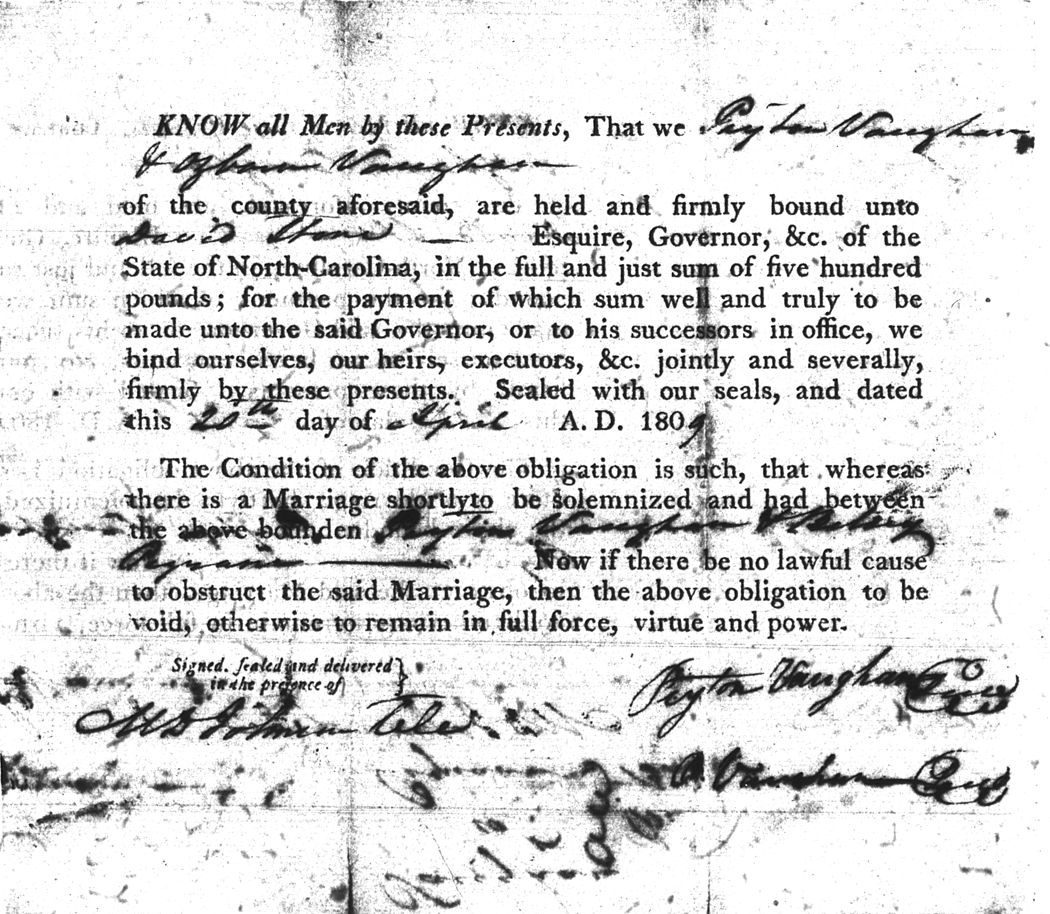 KNOW all Men by these Presents, That we Peyton Vaughan
& Vaughan
of the county aforesaid, are held and firmly bound unto
David Stone — Esquire, Governor, &c. of the
State of North-Carolina, in the full and just sum of five hundred
pounds; for the payment of which sum well and truly to be
made unto the said Governor, or to his successors in office, we
bind ourselves, our heirs, executors, &c. jointly and severally,
firmly by these presents. Sealed with our seals, and dated
this 20th day of April A. D. 1809
The Condition of the above obligation is such, that whereas
there is a Marriage shortlyto be solemnized and had between
the above bounden Peyton Vaughan & Betsey
Now if there be no lawful cause
to obstruct the said Marriage, then the above obligation to be
void, otherwise to remain in full force, virtue and power.
Signed, sealed and delivered
in the presence of
Peyton Vaughan Seal
M D Johnson
Vaughan Seal